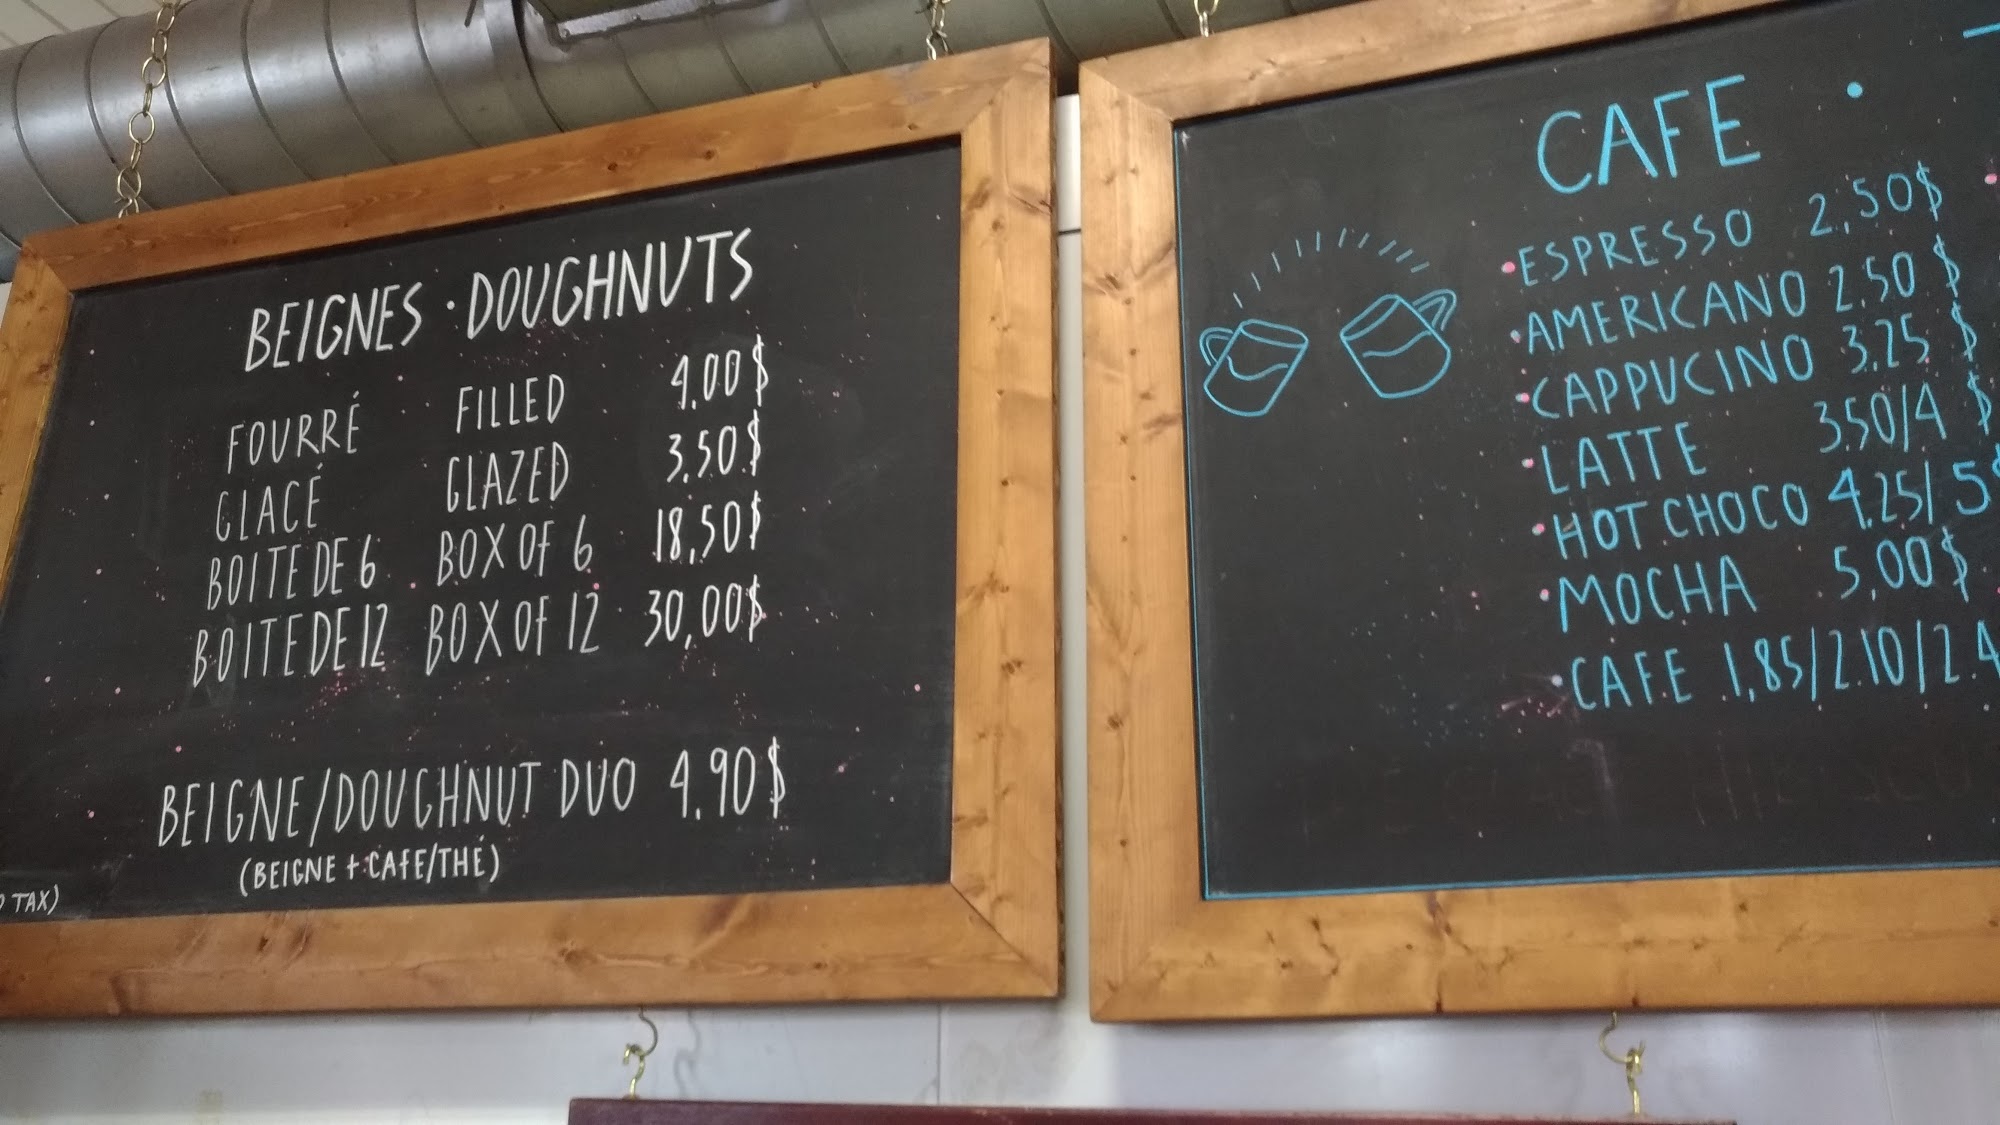 BEIGNES · DOUGHNUTS
FOURRÉ FILLED 4.00$
GLACÉ GLAZED 3.50$
BOITE DE 6 BOX OF 6 18,50$
BOITE DE 12 BOX OF 12 30,00$
BEIGNE/DOUGHNUT DUO 4.90$
(BEIGNE + CAFE/THÉ)
TAX)
CAFE ·
· ESPRESSO 2,50$
· AMERICANO 2.50$
· CAPPUCINO 3.25$
· LATTE 3.50/4$
· HOT CHOCO 4.25/5$
· MOCHA 5,00$
· CAFE 1,85/2.10/2.4